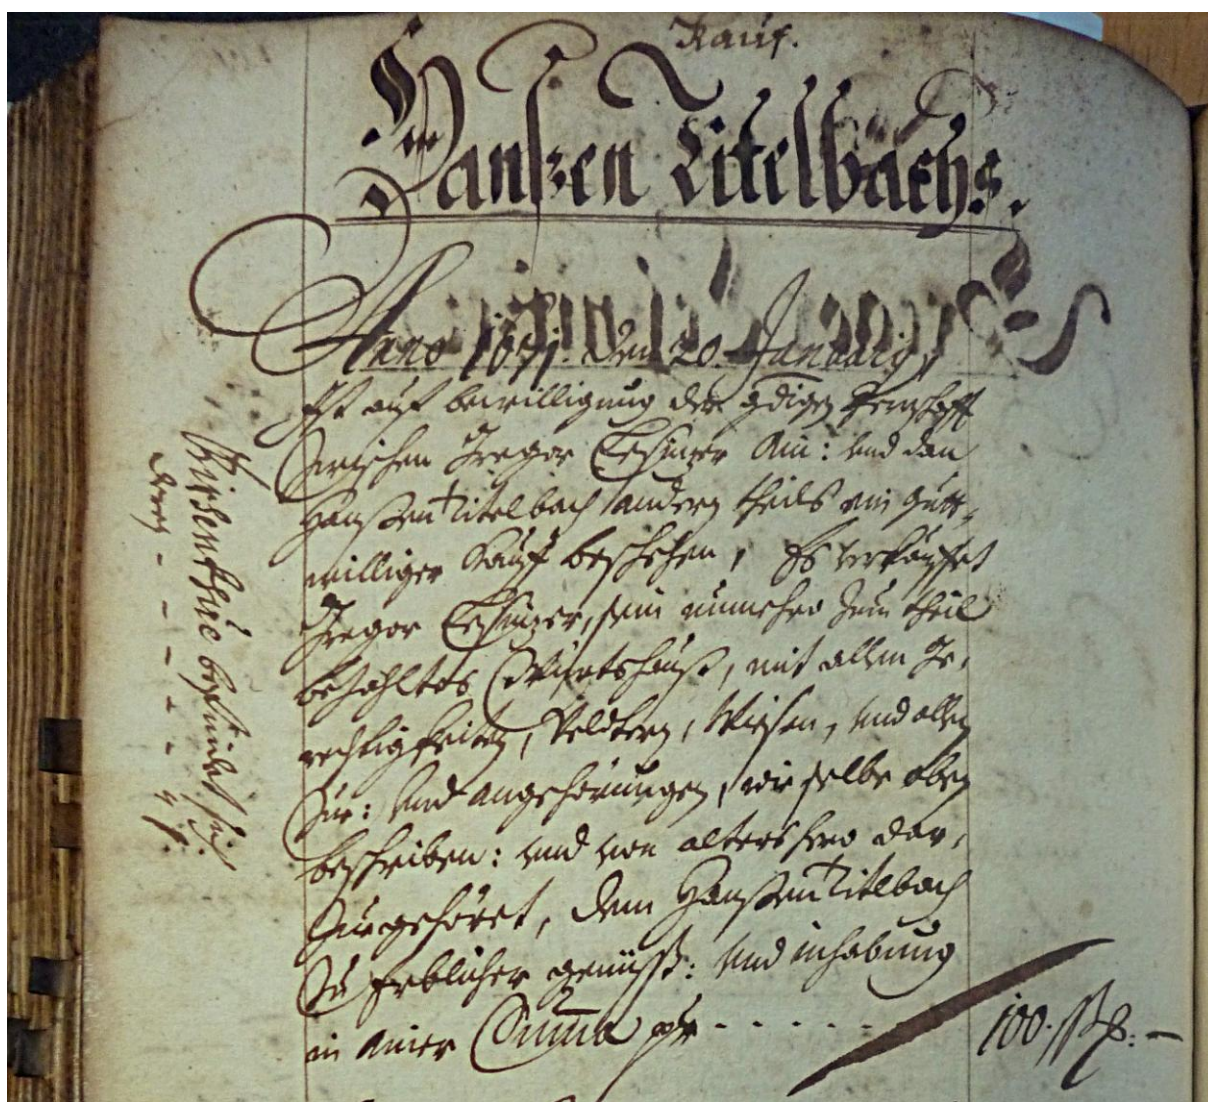 Kauf.
Hanßen Titelbachs.
Anno 1671. den 20. January,
Ist auf bewilligung der gdigen Herrschafft
Zwischen Gregor ain: und dan
Hanßen Titelbach andern theils ein gutt-
williger Kauf beschehen, Es verkauffet
Gregor sein nunmehro zum theil
bezahltes Würtshauß, mit allen Ge-
rechtigkeiten, Veldtern, Wiesen, und allen
Zue: und angehörungen, wie selbe oben
beschriben: und von altershero dar-
zue gehöret, dem Hanßen Titelbach
Zu Erblicher genüsß: und inhabung
in einer Summa per - - - - - -
100. ßß: —
befindet sich